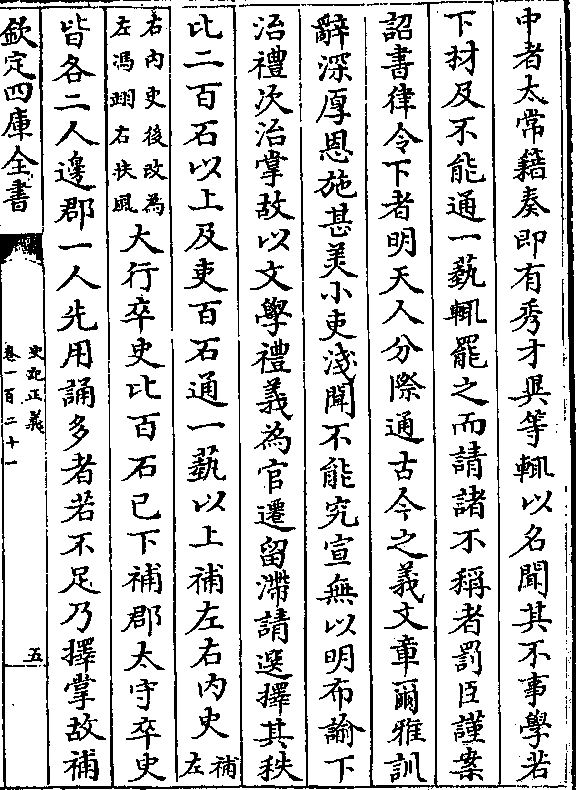 中者太常籍奏即有秀才異等輒以名聞其不事學若
下材及不能通一藝輒罷之而請諸不稱者罰臣謹案
詔書律令下者明天人分際通古今之義文章爾雅訓
辭深厚恩施甚美小吏淺聞不能究宣無以明布諭下
治禮次治掌故以文學禮義為官遷留滯請選擇其秩
比二百石以上及吏百石通一藝以上補左右內史補左
右內史後改為左馮翊右扶風大行卒史比百石已下補郡太守卒史
皆各二人邊郡一人先用誦多者若不足乃擇掌故補
欽定四庫全書
史記正義
卷一百二十一
五